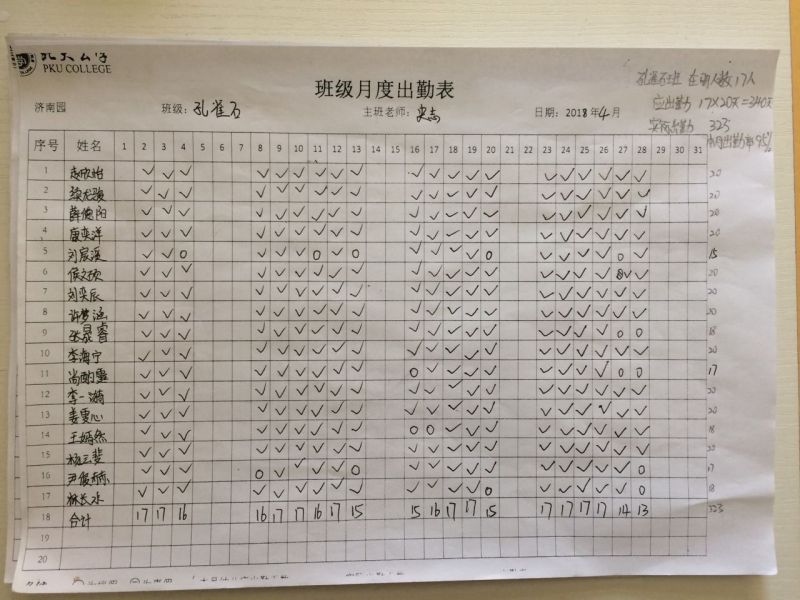 PKU COLLEGE
班级月度出勤表
孔雀石班 在册人数17人
应出勤 17×20天=340天
实际出勤 323
济南园 班级: 孔雀石 主班老师: 史志 日期: 2018年4月
序号 姓名 1 2 3 4 5 6 7 8 9 10 11 12 13 14 15 16 17 18 19 20 21 22 23 24 25 26 27 28 29 30 31
1 ✓ ✓ ✓ ✓ ✓ ✓ ✓ ✓ ✓ ✓ ✓ ✓ ✓ ✓ ✓ ✓ ✓ ✓ ✓ ✓ 20
2 ✓ ✓ ✓ ✓ ✓ ✓ ✓ ✓ ✓ ✓ ✓ ✓ ✓ ✓ ✓ ✓ ✓ ✓ ✓ ✓ 20
3 薛德阳 ✓ ✓ ✓ ✓ ✓ ✓ ✓ ✓ ✓ ✓ ✓ ✓ ✓ ✓ ✓ ✓ ✓ ✓ ✓ ✓ 20
4 唐奕洋 ✓ ✓ ✓ ✓ ✓ ✓ ✓ ✓ ✓ ✓ ✓ ✓ ✓ ✓ ✓ ✓ ✓ ✓ ✓ ✓ 20
5 刘宸溪 ✓ ✓ O ✓ ✓ ✓ O ✓ O ✓ ✓ ✓ ✓ O ✓ ✓ ✓ ✓ O ✓ 15
6 侯文欣 ✓ ✓ ✓ ✓ ✓ ✓ ✓ ✓ ✓ ✓ ✓ ✓ ✓ ✓ ✓ ✓ ✓ ✓ ✓ ✓ 20
7 刘奕辰 ✓ ✓ ✓ ✓ ✓ ✓ ✓ ✓ ✓ ✓ ✓ ✓ ✓ ✓ ✓ ✓ ✓ ✓ ✓ ✓ 20
8 许梦涵 ✓ ✓ ✓ ✓ ✓ ✓ ✓ ✓ ✓ ✓ ✓ ✓ ✓ ✓ ✓ ✓ ✓ ✓ ✓ ✓ 20
9 张晸睿 ✓ ✓ ✓ ✓ ✓ ✓ ✓ ✓ ✓ ✓ ✓ ✓ ✓ ✓ ✓ ✓ ✓ ✓ O O 18
10 李海宁 ✓ ✓ ✓ ✓ ✓ ✓ ✓ ✓ ✓ ✓ ✓ ✓ ✓ ✓ ✓ ✓ ✓ ✓ ✓ ✓ 20
11 ✓ ✓ ✓ ✓ ✓ ✓ ✓ ✓ ✓ O ✓ ✓ ✓ ✓ ✓ ✓ ✓ ✓ O O 17
12 李一漪 ✓ ✓ ✓ ✓ ✓ ✓ ✓ ✓ ✓ ✓ ✓ ✓ ✓ ✓ ✓ ✓ ✓ ✓ ✓ ✓ 20
13 姜雯心 ✓ ✓ ✓ ✓ ✓ ✓ ✓ ✓ ✓ ✓ ✓ ✓ ✓ ✓ ✓ ✓ ✓ ✓ ✓ ✓ 20
14 王嫣然 ✓ ✓ ✓ ✓ ✓ ✓ ✓ ✓ ✓ O O ✓ ✓ ✓ ✓ ✓ ✓ ✓ ✓ ✓ 18
15 ✓ ✓ ✓ ✓ ✓ ✓ ✓ ✓ ✓ ✓ ✓ ✓ ✓ ✓ ✓ ✓ ✓ ✓ ✓ ✓ 20
16 尹俊赫 ✓ ✓ ✓ O ✓ ✓ ✓ ✓ O ✓ ✓ ✓ ✓ ✓ ✓ ✓ ✓ ✓ ✓ O 17
17 林长水 ✓ ✓ ✓ ✓ ✓ ✓ ✓ ✓ ✓ ✓ ✓ ✓ ✓ O ✓ ✓ ✓ ✓ ✓ O 18
18 合计 17 17 16 16 17 17 16 17 15 15 16 17 17 15 17 17 17 17 14 13 323
19
20